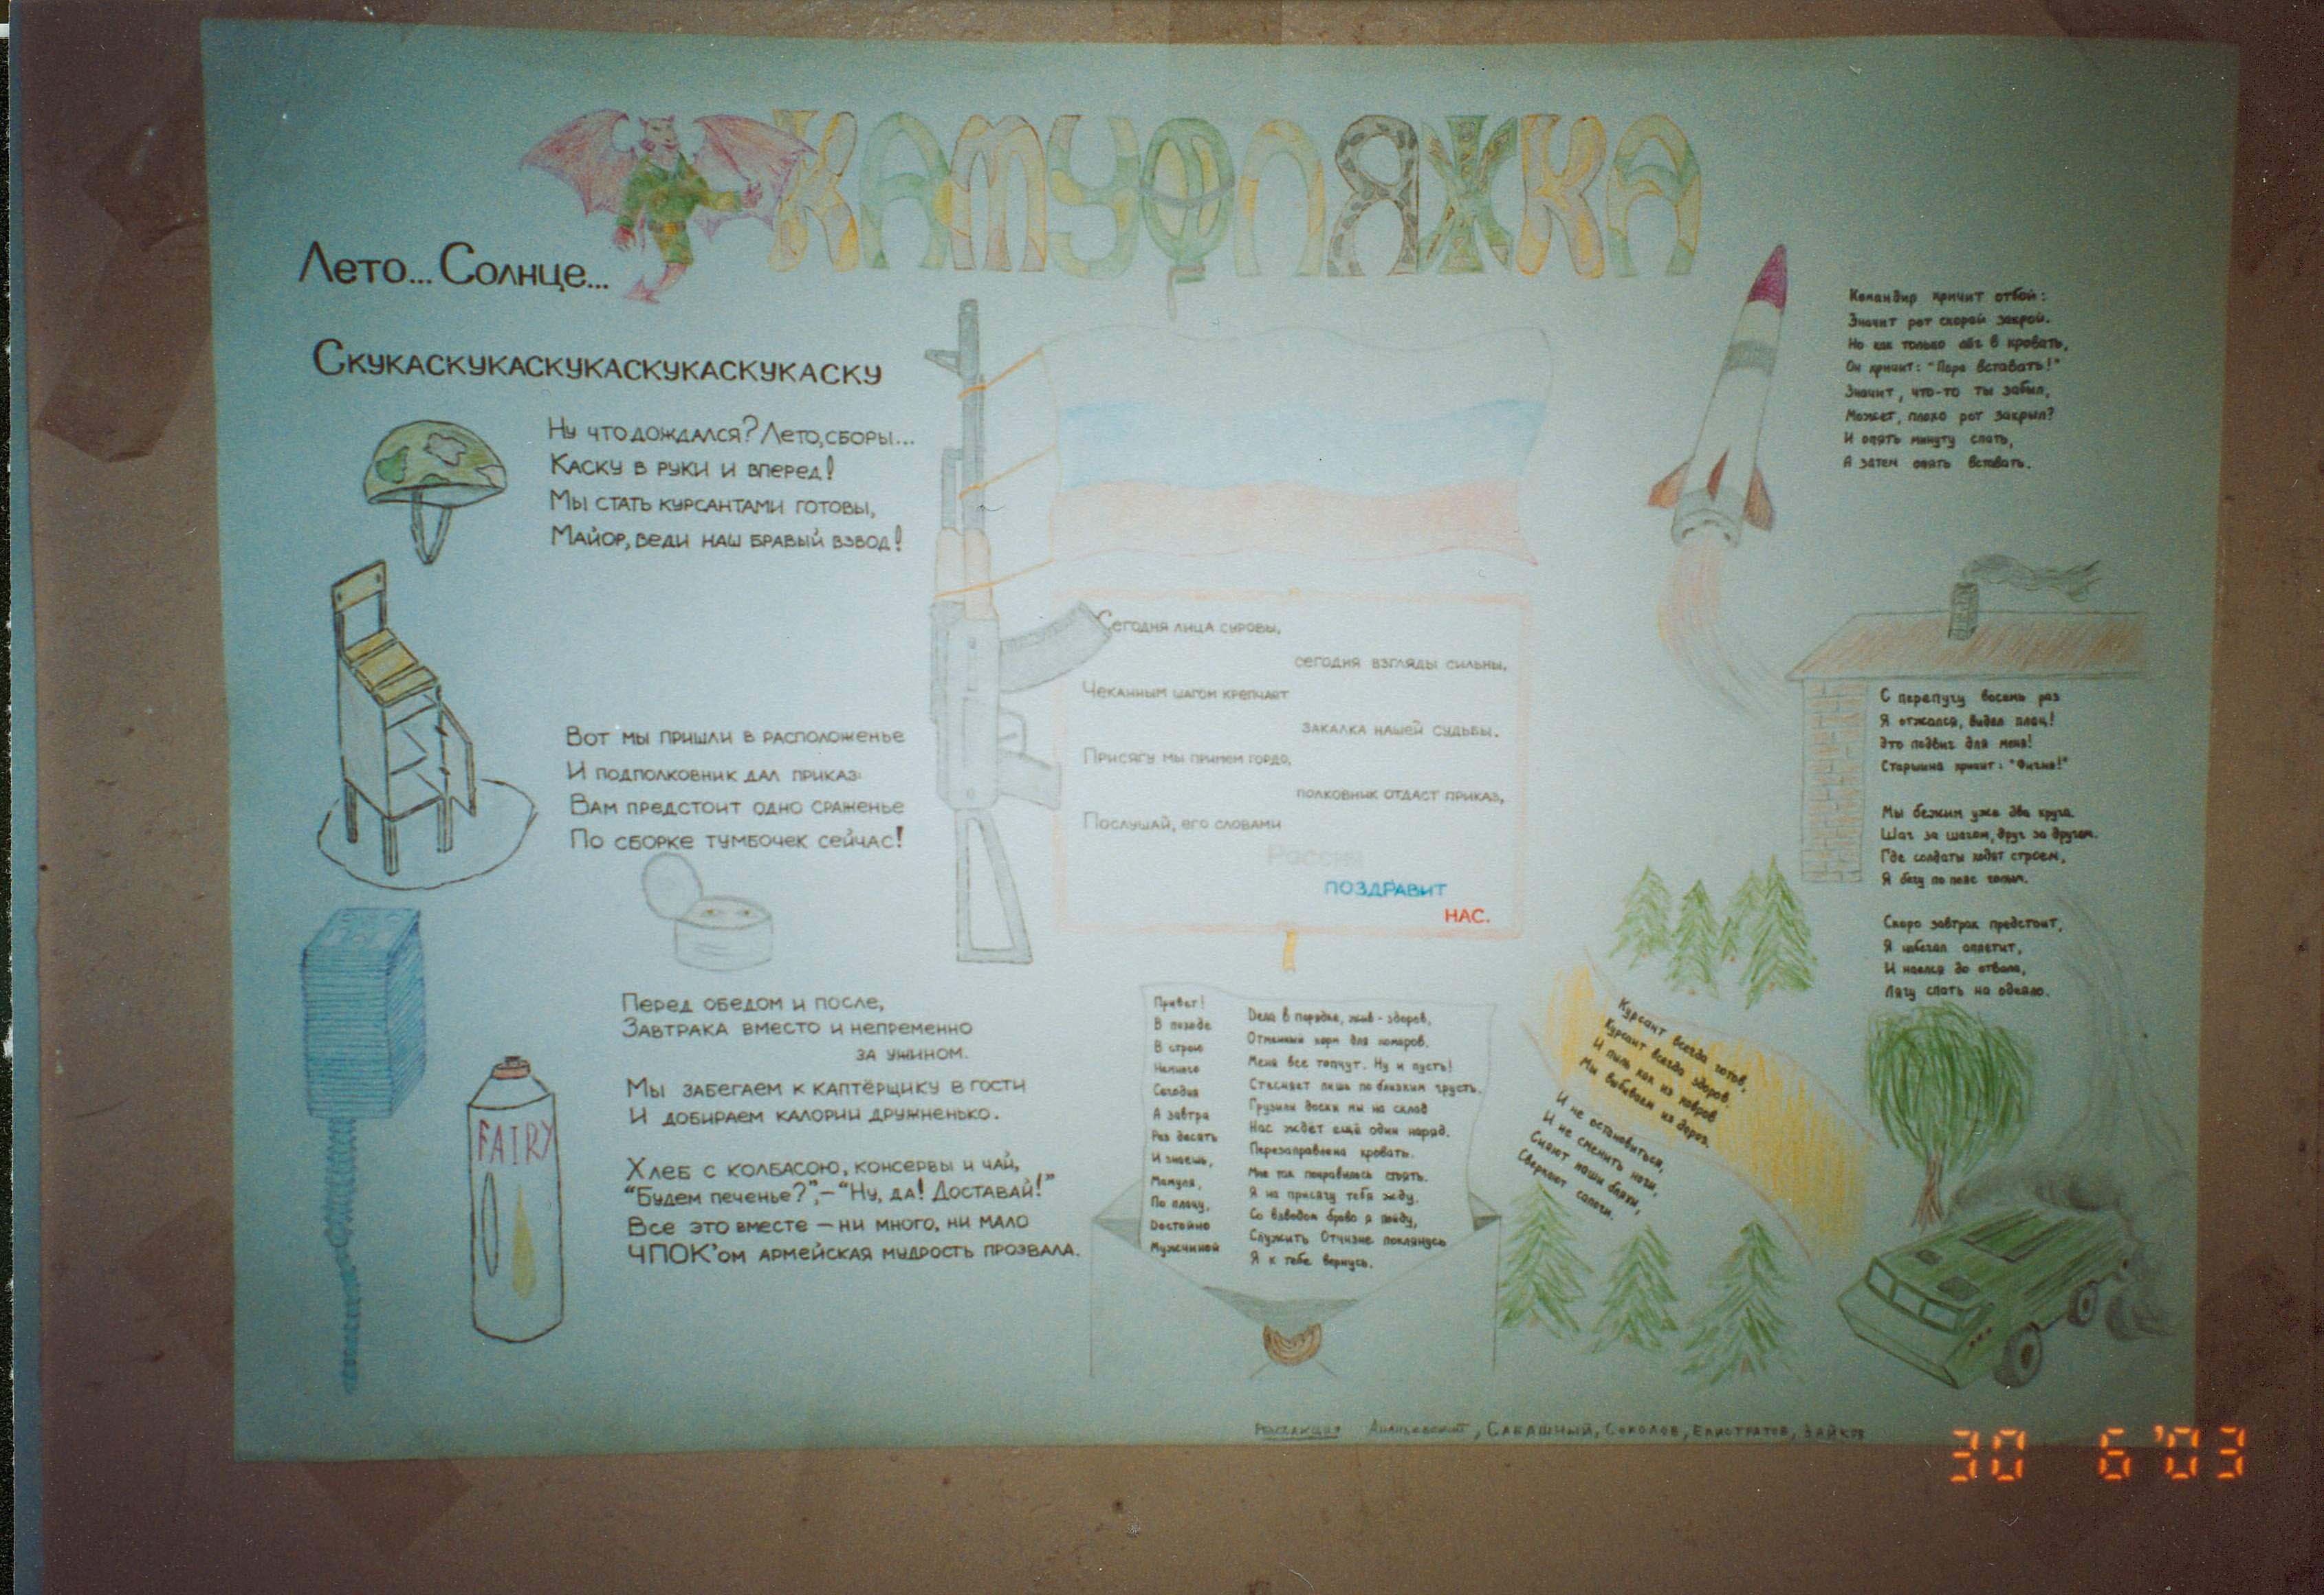 КАМУФЛЯЖКА
Лето... Солнце...
Скукаскукаскукаскукаскукаску
Ну что дождался? Лето, сборы...
Каску в руки и вперед!
Мы стать курсантами готовы,
Майор, веди наш бравый взвод!
Вот мы пришли в расположенье
И подполковник дал приказ:
Вам предстоит одно сраженье
По сборке тумбочек сейчас!
Перед обедом и после,
Завтрака вместо и непременно
за ужином.
Мы забегаем к каптёрщику в гости
И добираем калории дружненько.
Хлеб с колбасою, консервы и чай,
"Будем печенье?",– "Ну, да! Доставай!"
Все это вместе – ни много, ни мало
ЧПОК'ом армейская мудрость прозвала.
FAIRY
Сегодня лица суровы,
сегодня взгляды сильны,
Чеканным шагом крепчает
закалка нашей судьбы.
Присягу мы примем гордо,
полковник отдаст приказ,
Послушай, его словами
Россия
ПОЗДРАВИТ
НАС.
Привет! Дела в порядке, жив-здоров,
В походе Отменный корм для комаров.
В строю Меня все топчут. Ну и пусть!
Немного Стесняет лишь по близким грусть.
Сегодня Грузили доски мы на склад
А завтра Нас ждёт ещё один наряд.
Раз десять Перезаправлена кровать.
И знаешь, Мне так понравилось спать.
Мамуля, Я на присягу тебя жду.
По плацу, Со взводом браво я пойду,
Достойно Служить Отчизне поклянусь
Мужчиной Я к тебе вернусь.
Командир кричит отбой:
Значит рот скорей закрой.
Но как только лёг в кровать,
Он кричит: "Пора вставать!"
Значит, что-то ты забыл,
Может, плохо рот закрыл?
И опять минуту спать,
А затем опять вставать.
С перепугу восемь раз
Я отжался, видел плац!
Это подвиг для меня!
Старшина кричит: "Фигня!"
Мы бежим уже два круга
Шаг за шагом, друг за другом.
Где солдаты ходят строем,
Я бегу по пояс голым.
Скоро завтрак предстоит,
Я набегал аппетит,
И наелся до отвала,
Лягу спать на одеяло.
Курсант всегда готов,
Курсант всегда здоров.
И пыль как из ковров
Мы выбиваем из дорог.
И не остановиться,
И не сменить ноги,
Сияют наши бляхи,
Сверкают сапоги.
Редакция , Сабашный, Соколов, Елистратов, Зайков
30 6'03